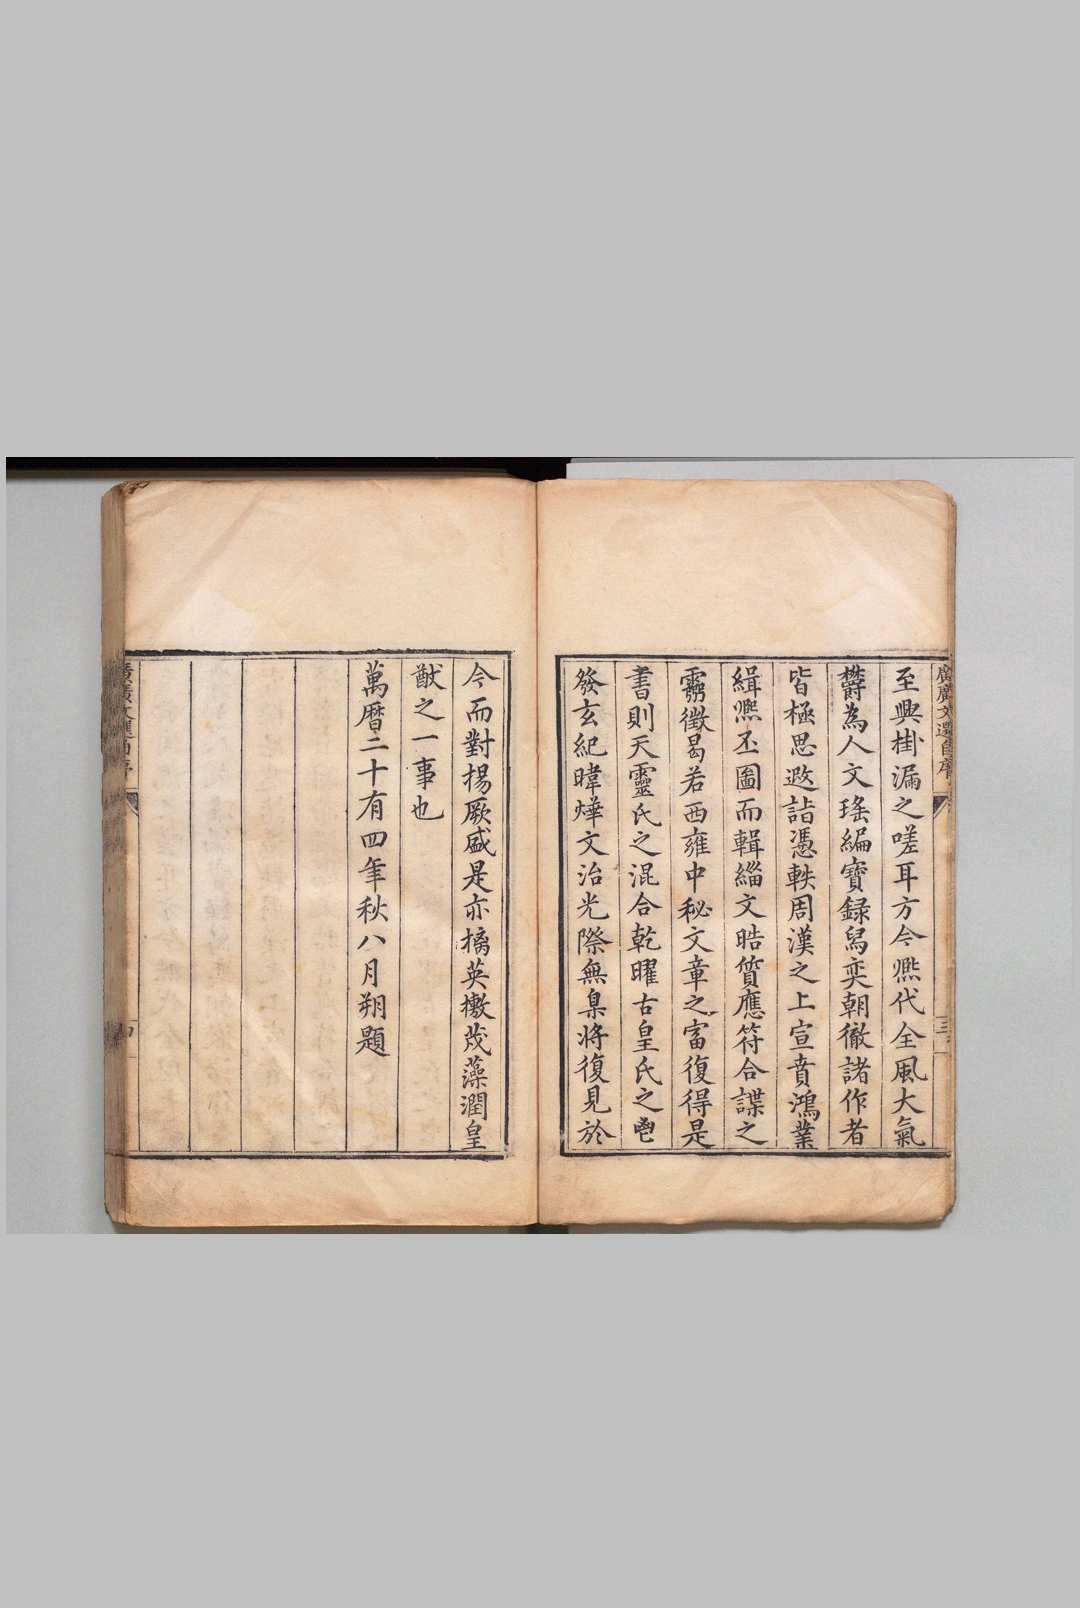 廣廣文選自序
三
至興掛漏之嗟耳方今熈代全風大氣
欝為人文瑤編寶録舄奕朝徹諸作者
皆極思遐詣憑軼周漢之上宣賁鴻業
緝熈丕圖而輯緇文晧質應符合諜之
霛徴曷若西雍中秘文章之富復得是
書則天靈氏之混合乾曜古皇氏之鬯
發玄紀暐燁文治光際無臬將復見於
今而對揚厥盛是亦摛英擻茂藻潤皇
猷之一事也
萬曆二十有四年秋八月朔題
廣廣文選自序
四